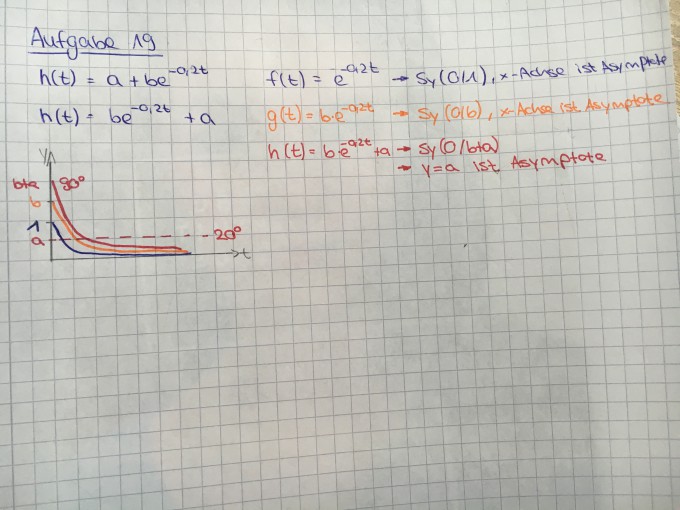 Aufgabe 19
h(t) = a + be^-0,2t
h(t) = be^-0,2t + a
f(t) = e^-0,2t → Sy(0/1), x-Achse ist Asymptote
g(t) = b·e^-0,2t → Sy(0/b), x-Achse ist Asymptote
h(t) = b·e^-0,2t +a → Sy(0/b+a)
→ y=a ist Asymptote
y
b+a 90°
b
1
a 20°
t